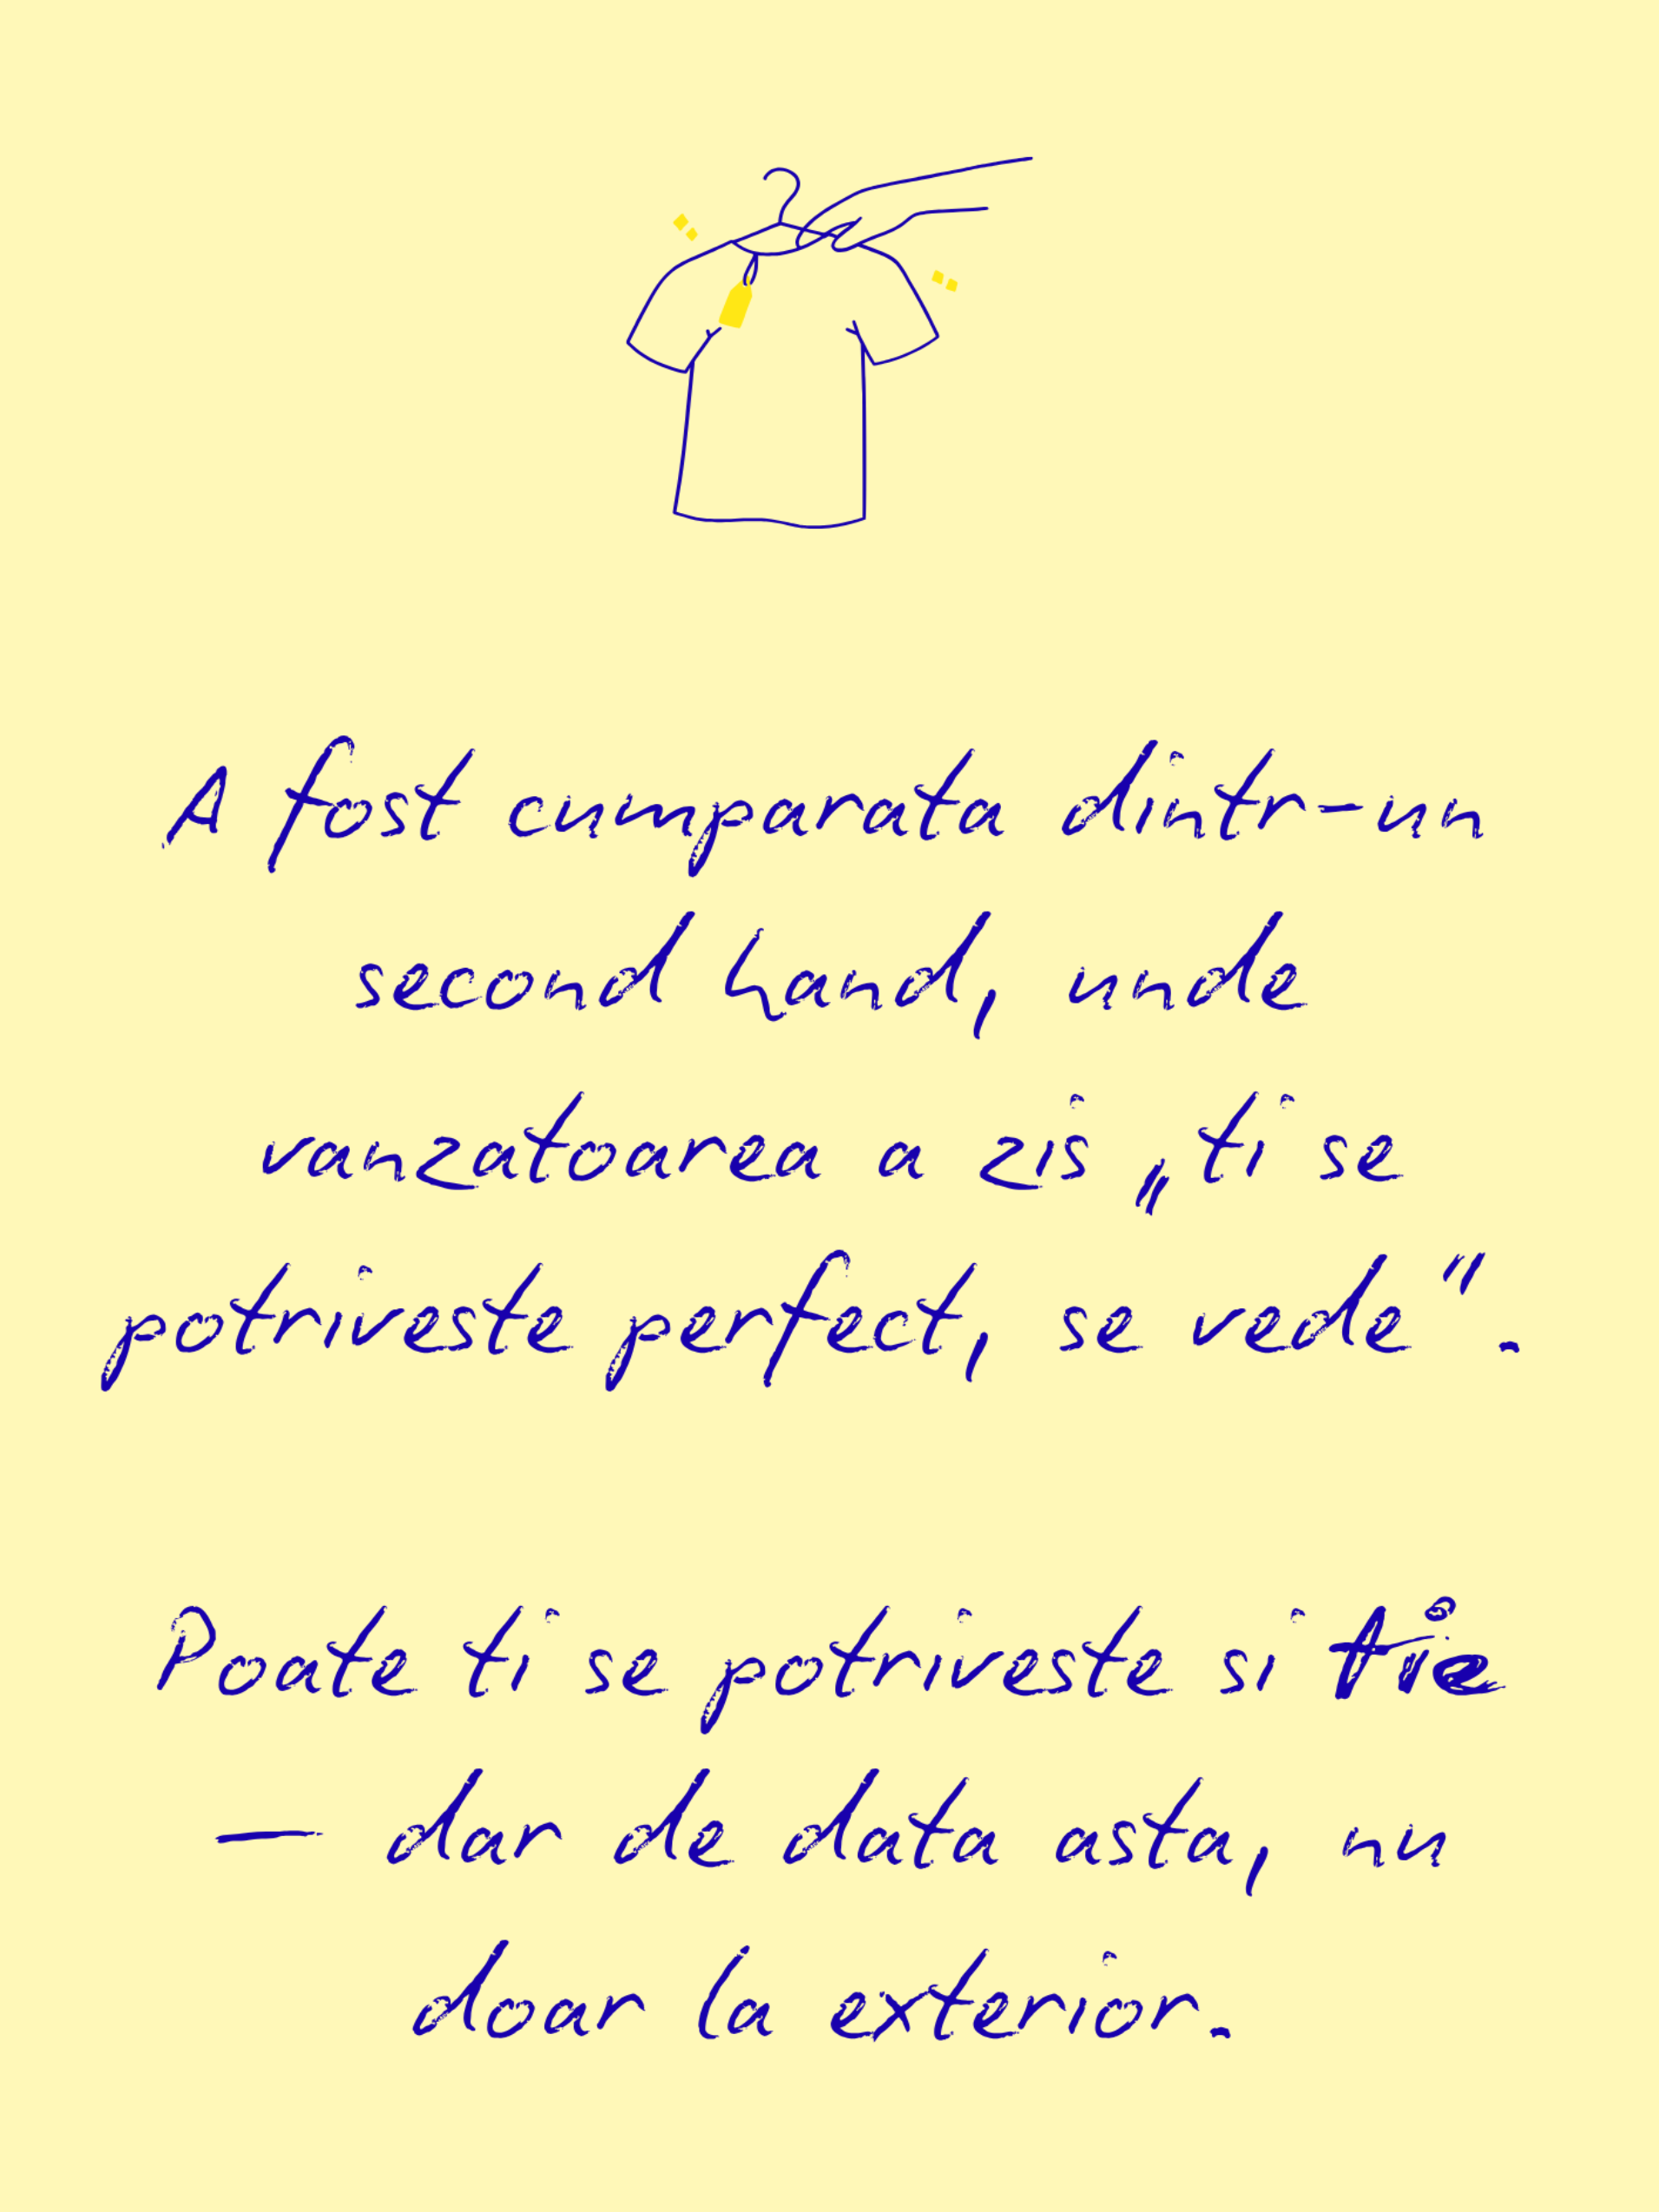 A fost cumparata dintr-un
second hand, unde
vanzatoarea a zis „ti se
potriveste perfect, se vede".
Poate ti se potriveste si tie
— dar de data asta, nu
doar la exterior.